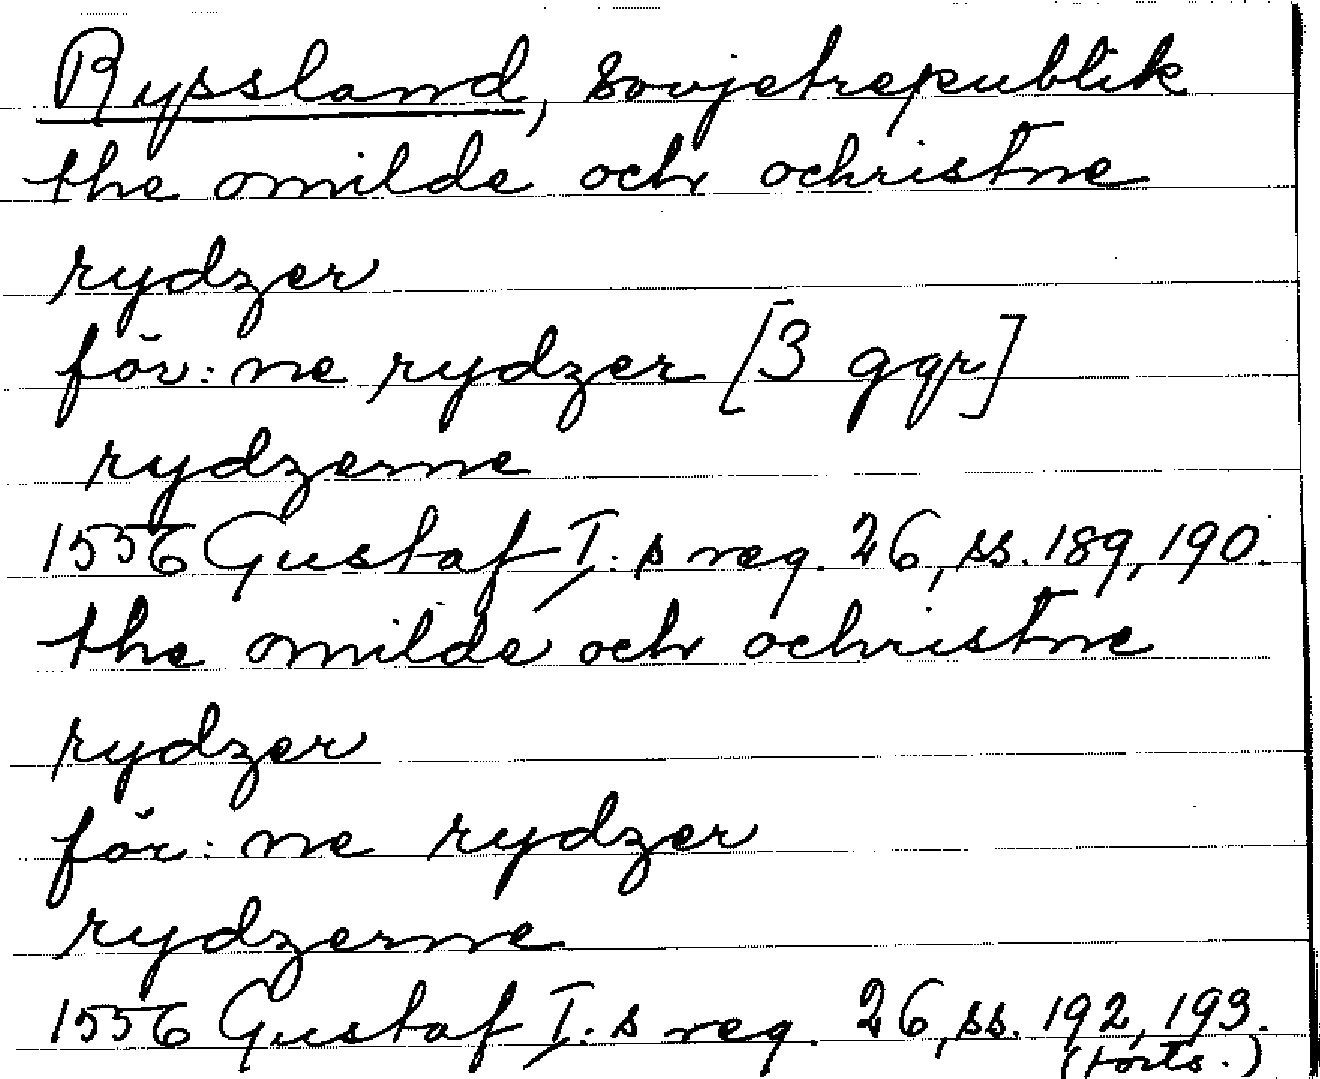 Ryssland, Sovjetrepublik
the omilde och ochristne
rydzer
för: ne rydzer [3 ggr]
rydzerne
1556 Gustaf I:s reg. 26, ss. 189, 190.
the omilde och ochristne
rydzer
för: ne rydzer
rydzerne
1556 Gustaf I:s reg. 26, ss. 192, 193.
(forts.)